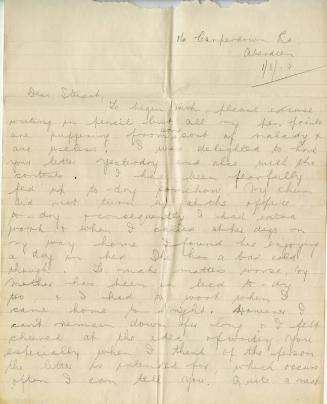 16 Camperdown Rd
Aberdeen
Dear Stewart,
To begin with, please excuse
writing in pencil but all my pen points
are suffering from some sort of malady &
are useless. I was delighted to have
your letter yesterday and also with the
contents. I has been fearfully
fed up to-day somehow. My chum
did not turn up at the office
to-day & consequently I had extra
work & when I called after digs on
my way home I found her enjoying
a day in bed. She has a bad cold
though. To make matters worse, my
Mother has been in bed to-day
too & I had to work when I
came home to-night. However I
can't remain down for long & I felt
cheered at the idea of writing you
especially when I think of the person
the letter is intended for, which occurs
often I can tell you. Quite a rest